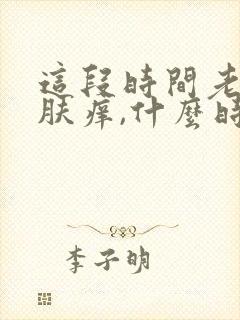 這段時間老
膚癢,什麼時
李子明